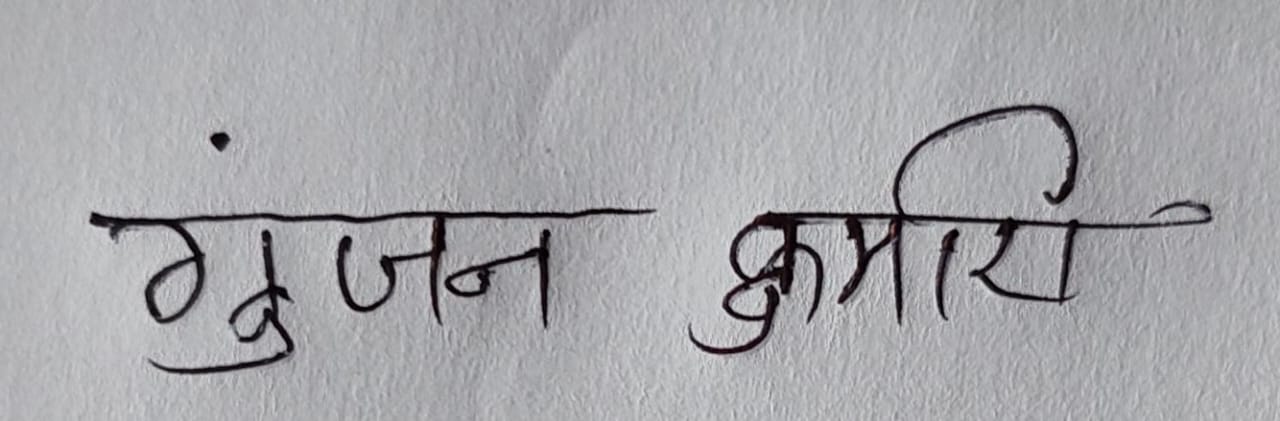 गुंजन कुमारी